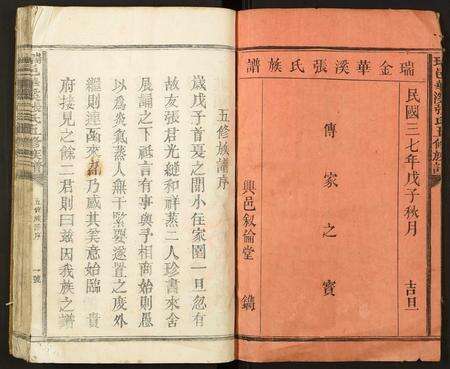 瑞金華溪張氏族譜
民國三七年戊子秋月 吉旦
傳家之寶
興邑敘倫堂 鐫
五修族譜序
歲戊子首夏之間小住家園一旦忽有
故友張君光縫和祥蒸二人珍書來舍
晨誦之下祗言有事與予相商始則愚
以為炎氣蒸人無干緊要遂置之度外
繼則連函來 乃感其美意始臨 貴
府接見之餘二君則曰茲因我族之譜
五修譜序
一號